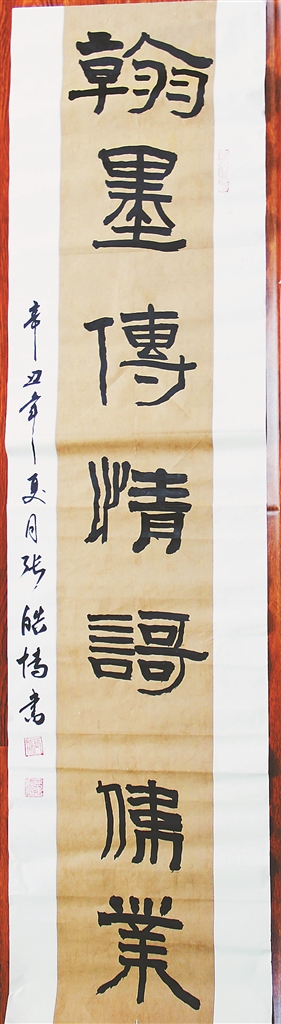 翰墨傳情謌偉業
辛丑年夏月張皓博書